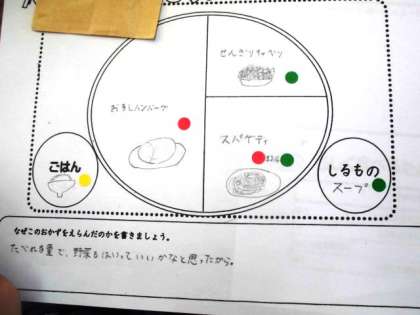 せんぎりキャベツ
おろしハンバーグ
スパゲティ
ごはん
しるもの
スープ
なぜこのおかずをえらんだのかを書きましょう。
たべれる量で、野菜もはいっていいかなと思ったから。